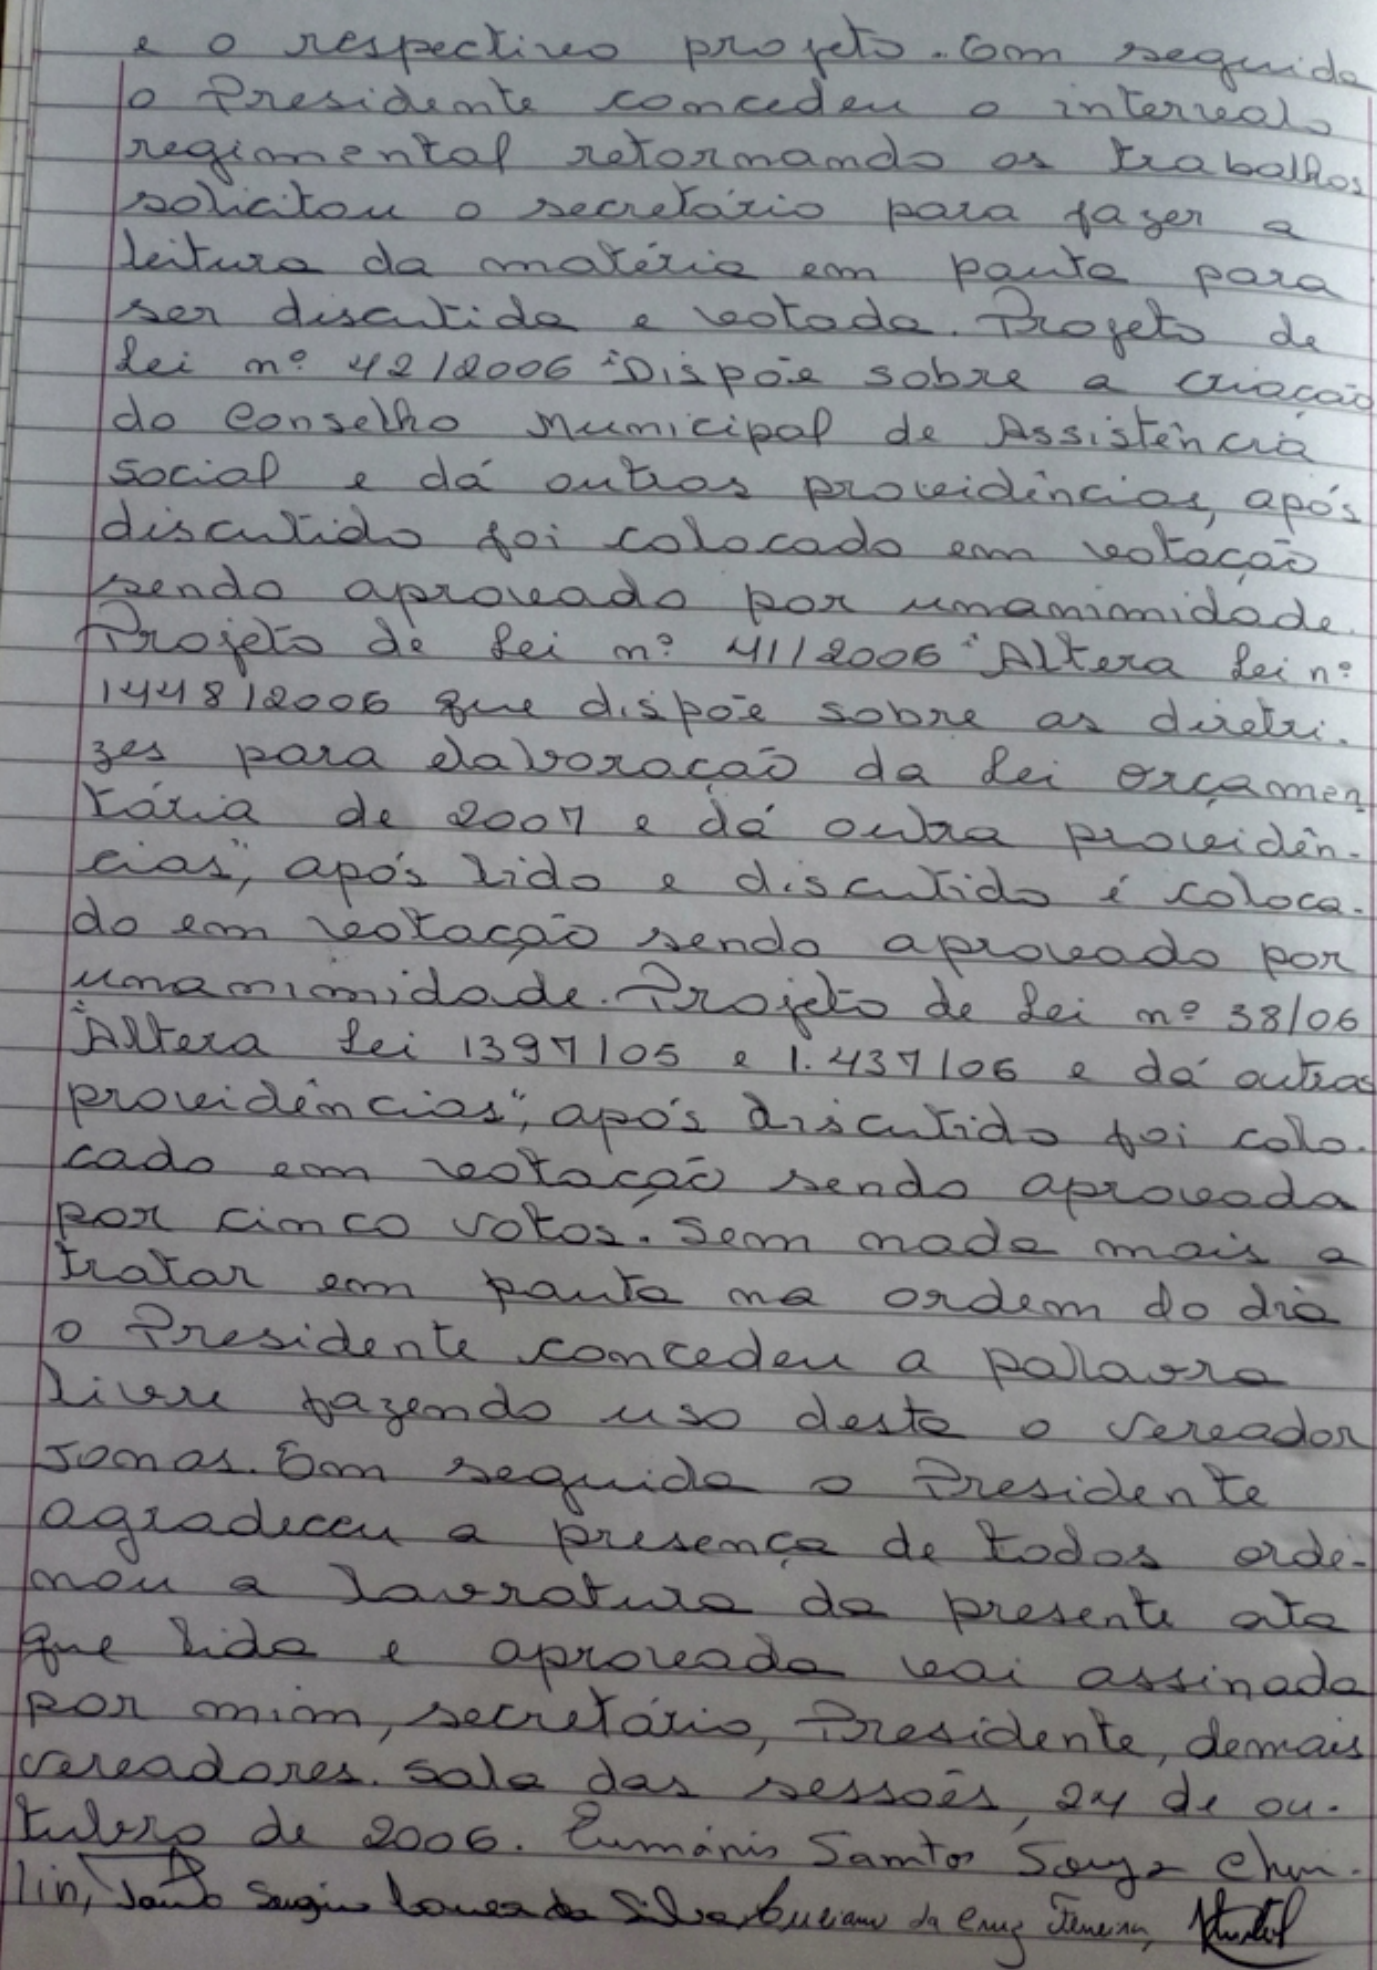 e o respectivo projeto. Em seguida
o Presidente concedeu o intervalo
regimental retornando os trabalhos
solicitou o secretário para fazer a
leitura da matéria em pauta para
ser discutida e votada. Projeto de
Lei nº 42/2006 "Dispõe sobre a criação
do Conselho Municipal de Assistência
Social e dá outras providências, após
discutido foi colocado em votação
sendo aprovado por unanimidade.
Projeto de Lei nº 41/2006 "Altera Lei nº
1448/2006 que dispõe sobre as diretri-
zes para elaboração da Lei orçamen
tária de 2007 e dá outra providên-
cias", após lido e discutido é coloca-
do em votação sendo aprovado por
unanimidade. Projeto de Lei nº 38/06
"Altera Lei 1397/05 e 1.437/06 e dá outras
providências", após discutido foi colo-
cado em votação sendo aprovada
por cinco votos. Sem nada mais a
tratar em pauta na ordem do dia
o Presidente concedeu a palavra
livre fazendo uso desta o vereador
Jonas. Em seguida o Presidente
agradeceu a presença de todos orde-
nou a lavratura da presente ata
que lida e aprovada vai assinada
por mim, secretário, Presidente, demais
vereadores. Sala das sessões, 24 de ou-
tubro de 2006. Santos Souza
lin, da Silva, Luciano da Cruz Ferreira,